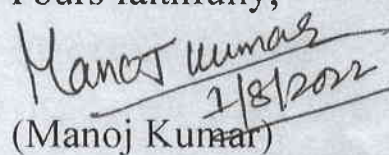 Yours faithfully,
Manoj Kumar
1/8/2022
(Manoj Kumar)